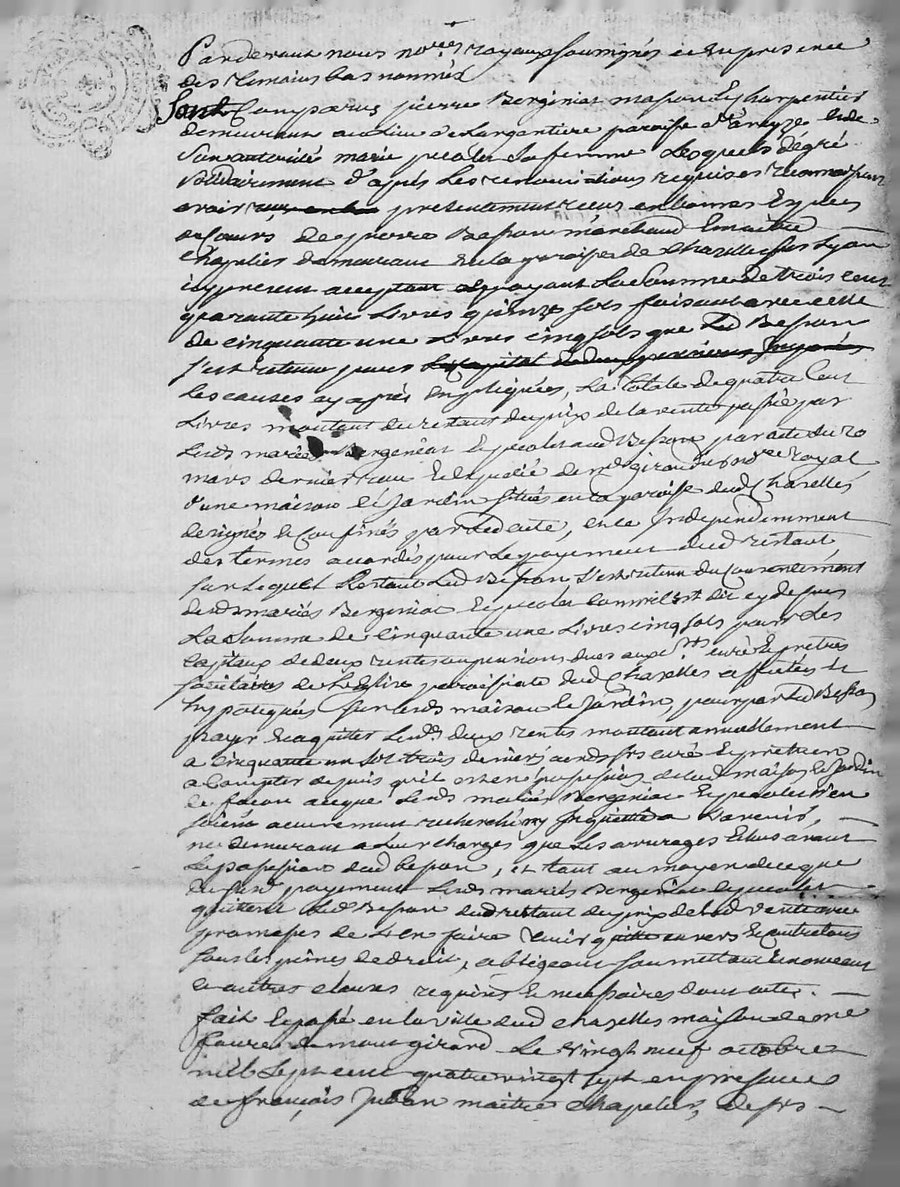 Pardevant nous no.res royaux soussignés et en presence
des temoins bas nommés
Sont Comparus pierre Bergeniat masson et charpentier
demeurant au lieu de Largentiere paroisse et de
son autorité marie sa femme Lesquels dégré
solidairement d'ajuls les renonciations requises reconnoissent
avoir presentement receu en bonnes Especes
de Cours de pierre Besson marchand Emaitre
Chapelier demeurant en la paroisse de Chazelles sur Lyon
icy present acceptant et payant La Somme de trois cent
quarante huit Livres quinze sols faisant avec celle
de cinquante une Livres cinq sols que Led Besson
s'est retenu pour
les causes cy après Expliquées, La totale de quatre Cent
Livres montant du restant du prix de la vente passée par
Lesds mariés Bergeniat Et aud Besson par acte du 20
mars dernier receu Et Expedié de me giraud no.re royal
d'une maison et Jardin situés en la paroisse dud Chazelles
designés et Confinés par led acte, et ce Independemment
des termes accordés pour Le payement dud restant
sur Lequel Restant Led Besson s'est retenu du Consentement
desds mariés Bergeniat Et Comme il est dit cy dessus
La Somme de Cinquante une Livres cinq sols pour Les
Capitaux de deux rentes ou pensions dues aux srs curé Et pretres
societaires de L'Eglise paroissiale dud Chazelles affectées et
hypotequées sur lesd maison et Jardin, pour par led Besson
payer Et aquitter Lesds deux rentes montant annuellement
a cinquante un sols trois deniers auxds srs curé Et pretres
a Compter depuis qu'il est en possession de lad maison et Jardin
de façon aceque Lesds mariés Bergeniat Et n'en
soient aucunement recherchés ny Inquiettés a L'avenir,
ne demeurant a Leur charges que Les arrerages Echus avant
La possession dud Besson, et tant au moyen de ce que
dessus payement Lesds mariés Bergeniat Et
quittent Led Besson dud restant du prix de lad vente avec
promesses de L'en faire tenir quitte envers Et Contre tous
sous les peines de droit, obligeant soumettant Renonceant
et autres clauses requises Et necessaires dont acte.
fait Et passé en la ville dud chazelles maison de me
faure de montgirard Le vingt neuf octobre
mil sept cent quatre vingt sept en presence
de françois maitre chapelier, de srs